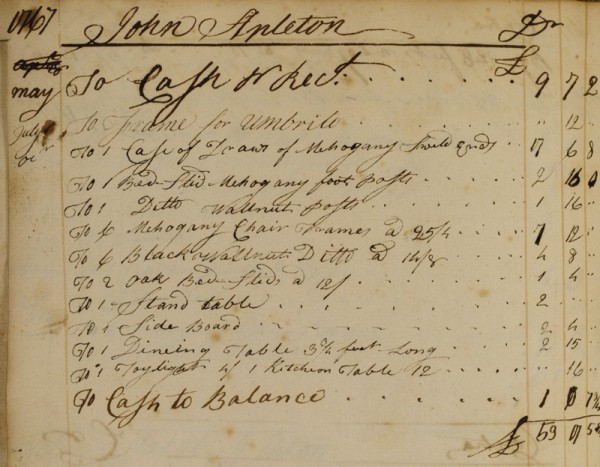 1767 John Apleton Dr
£
may To Cash ⅌ Rect. 9 7 2
July To Frame for Umbrilo " 12 "
To 1 Case of Draws of Mehogany Sweld Ends 17 6 8
To 1 Bed Stid Mehogany foot posts 2 16 0
To 1 Ditto Wallnut posts 1 16 "
To 6 Mehogany Chair Frames a 25/4 7 12 "
To 6 Black Wallnut Ditto a 14/8 4 8 "
To 2 Oak Bed Stids a 12/ 1 4 "
To 1 Stand table 2
To 1 Side Board 2 4 "
To 1 Dineing Table 3¾ feet Long 2 15 "
To 1 4/ 1 Kitchen Table 12 " 16 "
To Cash to Balance 1 0
£ 53